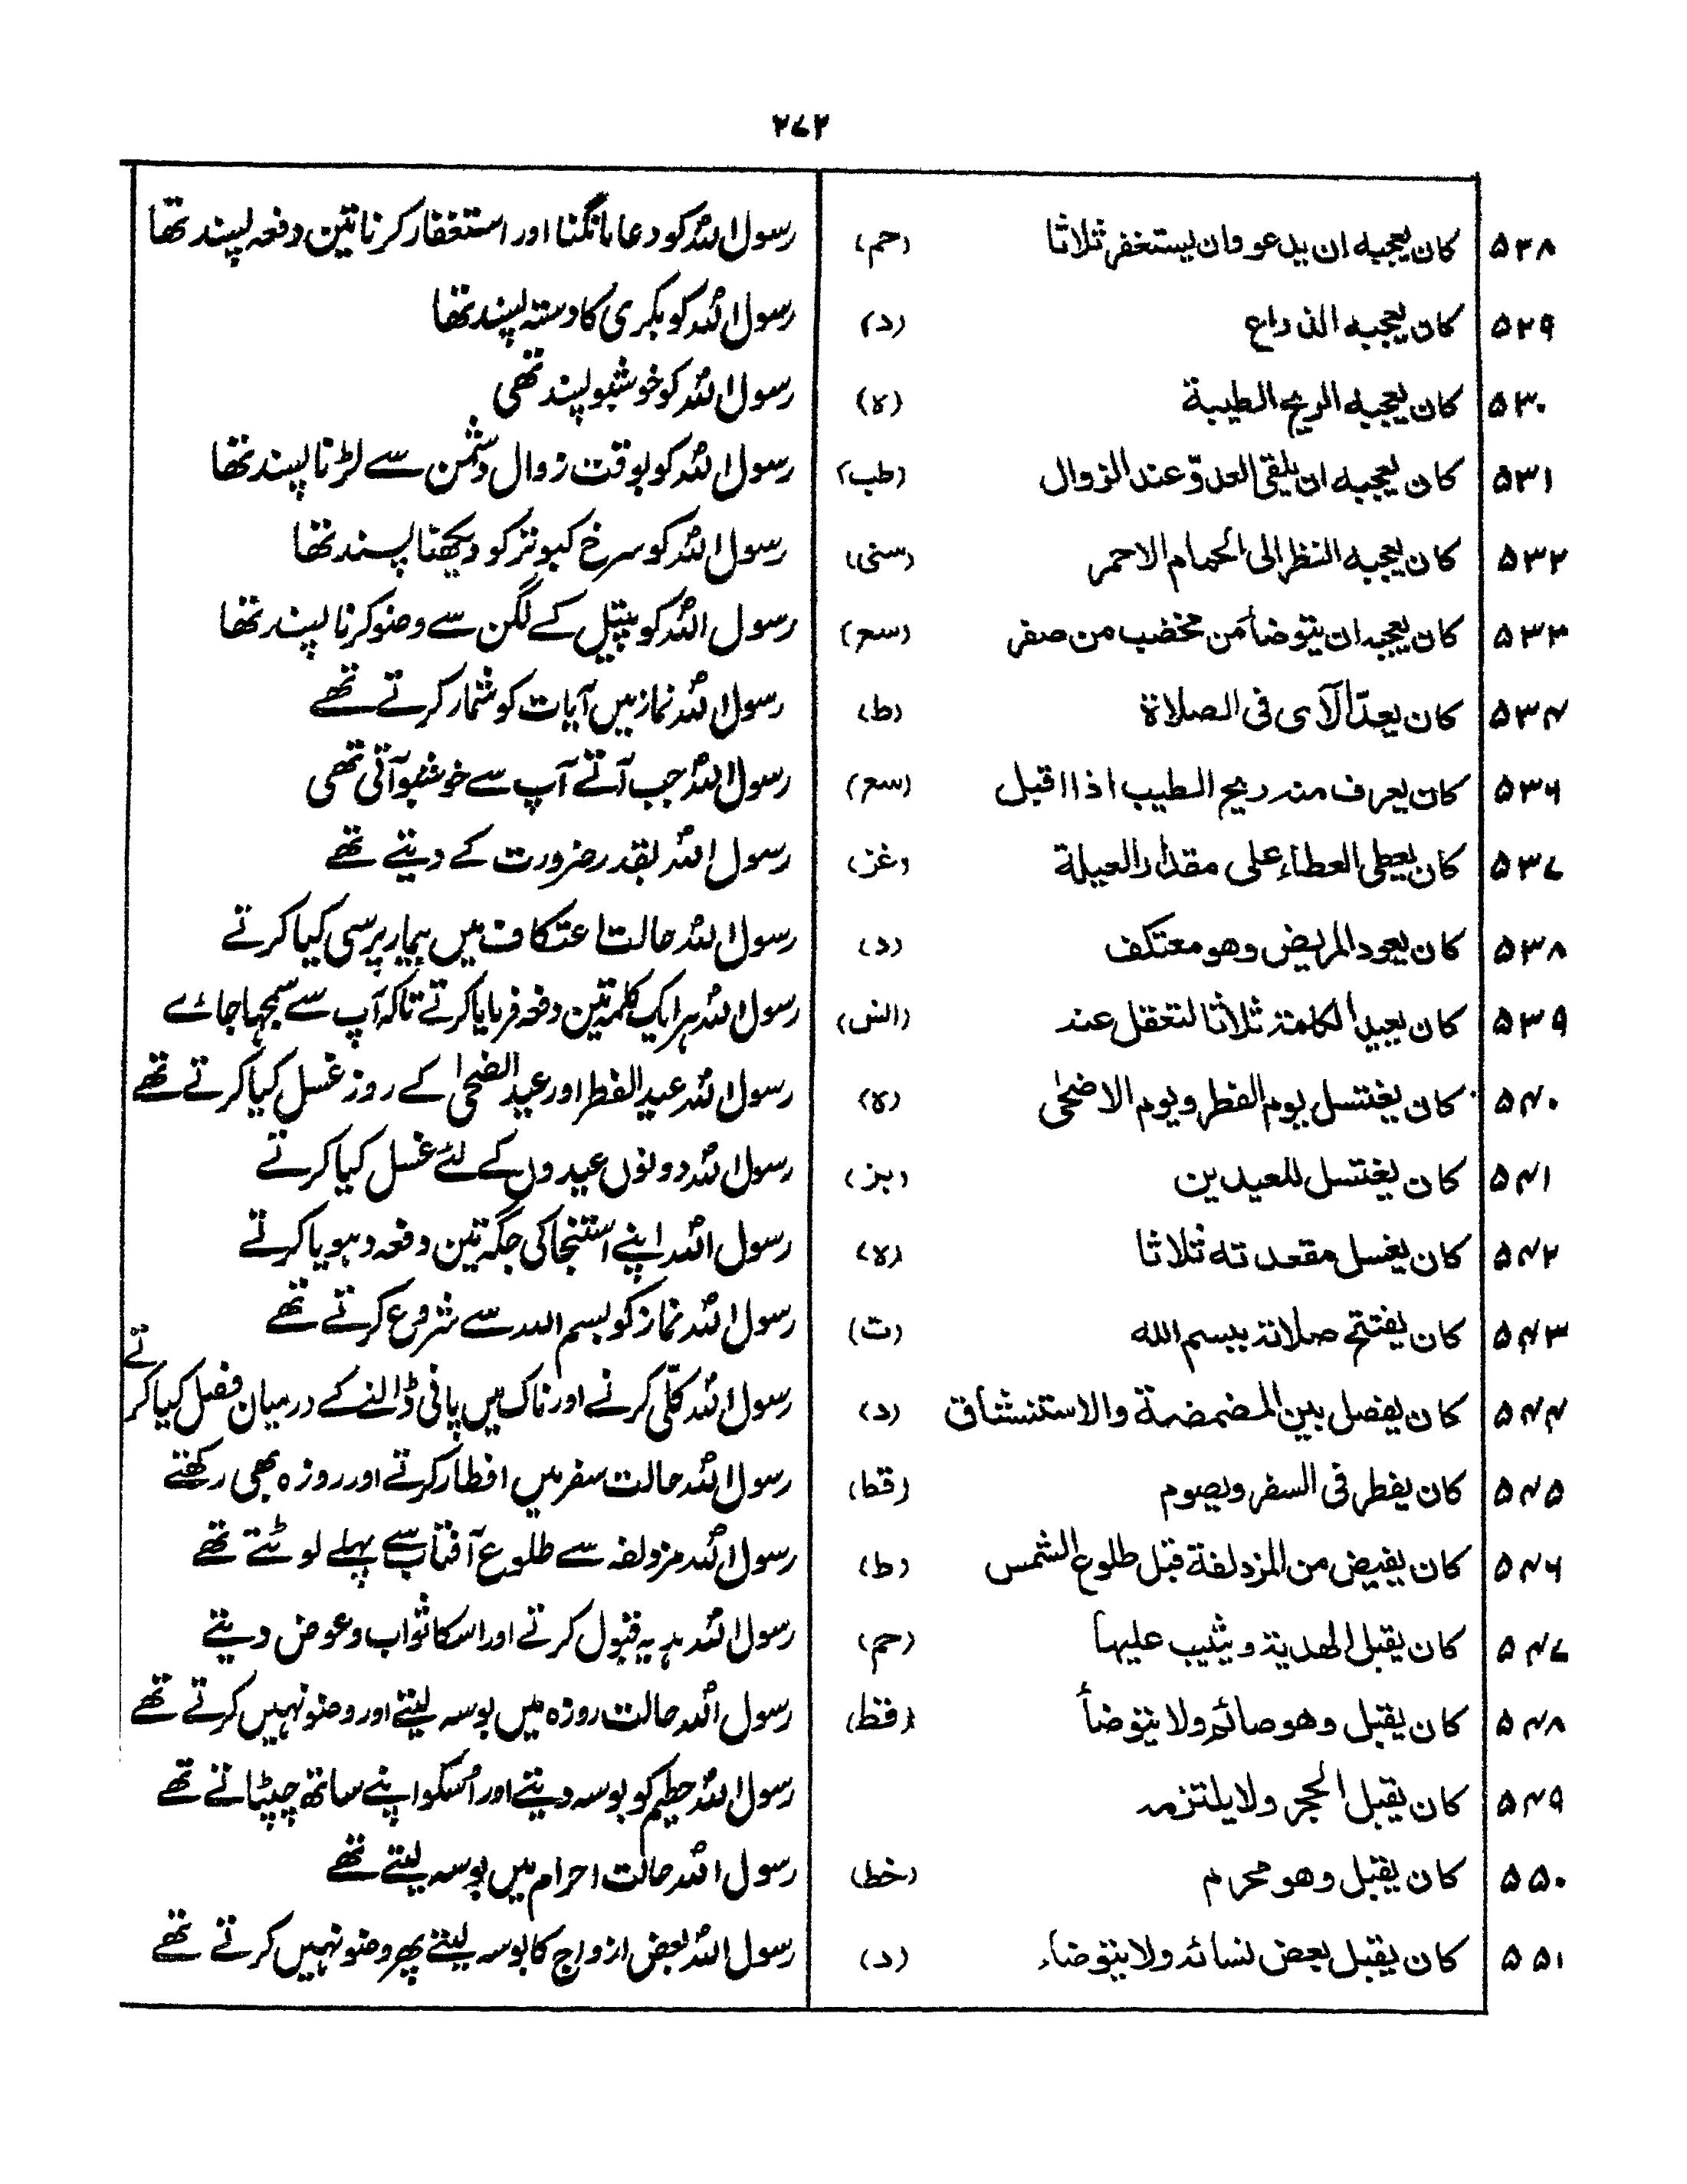 ۲۷۲
۵۲۸ کان یعجبہ ان یدعو وان یستغفر ثلاثا (حم) رسول اللہ کو دعا مانگنا اور استغفار کرنا تین دفعہ پسند تھا
۵۲۹ کان یعجبہ الذراع (د) رسول اللہ کو بکری کا دستہ پسند تھا
۵۳۰ کان یعجبہ الریح الطیبة (ہ) رسول اللہ کو خوشبو پسند تھی
۵۳۱ کان یعجبہ ان یلقی العدوّ عند الزوال (طب) رسول اللہ کو بوقت زوال دشمن سے لڑنا پسند تھا
۵۳۲ کان یعجبہ النظر الی الحمام الاحمر (سنی) رسول اللہ کو سرخ کبوتر کو دیکھنا پسند تھا
۵۳۳ کان یعجبہ ان یتوضأ من مخضب من صفر (سعر) رسول اللہ کو پیتل کے لگن سے وضو کرنا پسند تھا
۵۳۴ کان یعدّ الآی فی الصلاة (ط) رسول اللہ نماز میں آیات کو شمار کرتے تھے
۵۳۶ کان یعرف منہ ریح الطیب اذا اقبل (سعر) رسول اللہ جب آتے آپ سے خوشبو آتی تھی
۵۳۷ کان یعطی العطاء علی مقدار العیلة (غز) رسول اللہ بقدر ضرورت کے دیتے تھے
۵۳۸ کان یعود المریض وھو معتکف (د) رسول اللہ حالت اعتکاف میں بیمار پرسی کیا کرتے
۵۳۹ کان یعید الکلمة ثلاثا لتعقل عنہ (الش) رسول اللہ ہر ایک کلمہ تین دفعہ فرمایا کرتے تاکہ آپ سے سمجہا جائے
۵۴۰ کان یغتسل یوم الفطر ویوم الاضحٰی (ہ) رسول اللہ عید الفطر اور عید الضحٰی کے روز غسل کیا کرتے تھے
۵۴۱ کان یغتسل للعیدین (بز) رسول اللہ دونوں عیدوں کے لئے غسل کیا کرتے
۵۴۲ کان یغسل مقعد تہ ثلاثا (ہ) رسول اللہ اپنے استنجا کی جگہ تین دفعہ دہویا کرتے
۵۴۳ کان یفتتح صلاتہ ببسم اللہ (ت) رسول اللہ نماز کو بسم اللہ سے شروع کرتے تھے
۵۴۴ کان یفصل بین المضمضة والاستنشاق (د) رسول اللہ کلّی کرنے اور ناک میں پانی ڈالنے کے درمیان فصل کیا کرتے
۵۴۵ کان یفطر فی السفر ویصوم (قط) رسول اللہ حالت سفر میں افطار کرتے اور روزہ بھی رکھتے
۵۴۶ کان یفیض من المزدلفة قبل طلوع الشمس (ط) رسول اللہ مزدلفہ سے طلوع آفتاب سے پہلے لوٹتے تھے
۵۴۷ کان یقبل الھدیة ویثیب علیہا (حم) رسول اللہ ہدیہ قبول کرتے اور اسکا ثواب وعوض دیتے
۵۴۸ کان یقبل وھو صائم ولا یتوضأ (قط) رسول اللہ حالت روزہ میں بوسہ لیتے اور وضو نہیں کرتے تھے
۵۴۹ کان یقبل الحجر ولا یلتزمہ رسول اللہ حطیم کو بوسہ دیتے اور اُسکو اپنے ساتھ چپٹاتے تھے
۵۵۰ کان یقبل وھو محرم (خط) رسول اللہ حالت احرام میں بوسہ لیتے تھے
۵۵۱ کان یقبل بعض نسائہ ولا یتوضاء (د) رسول اللہ بعض ازواج کا بوسہ لیتے پھر وضو نہیں کرتے تھے